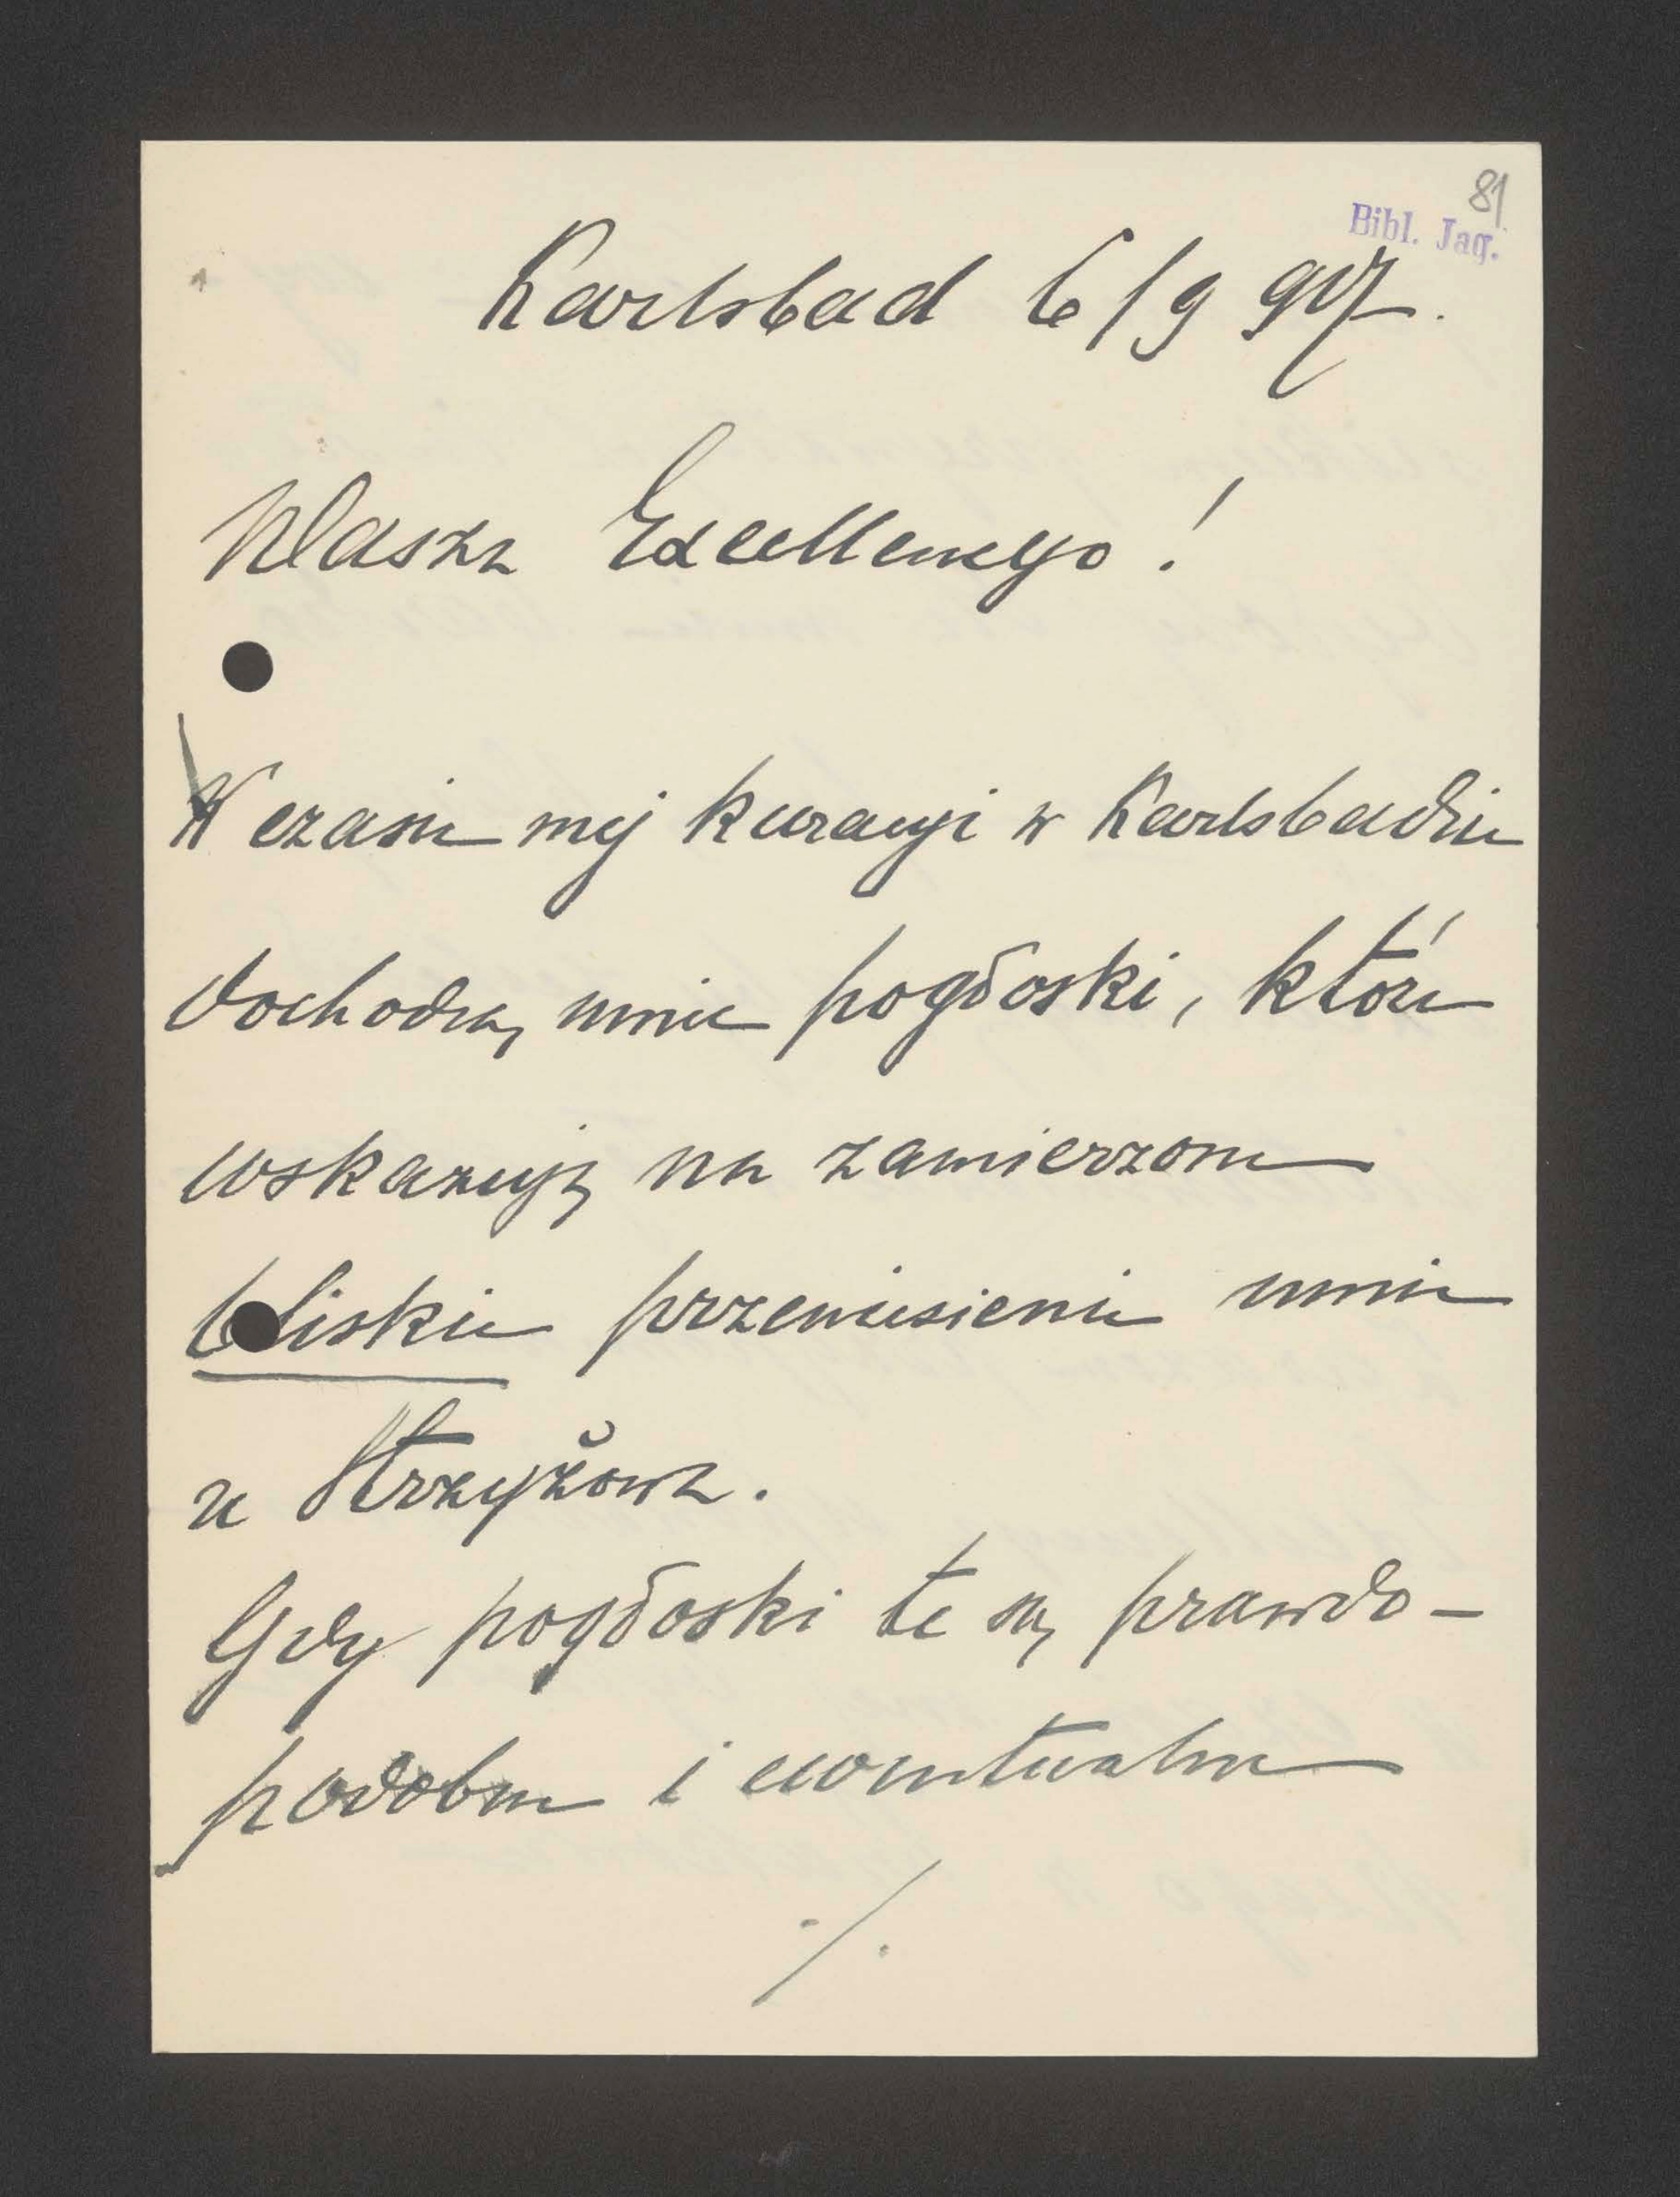 81
Bibl. Jag.
Karlsbad 6/9 907.
Wasza Excellencyo!
W czasie mej kuracyi w Karlsbadzie
dochodzą mnie pogłoski, które
wskazują na zamierzone
bliskie przeniesienie mnie
ze Strzyżowa.
Gdy pogłoski te są prawdo-
podobne i ewentualne
./.